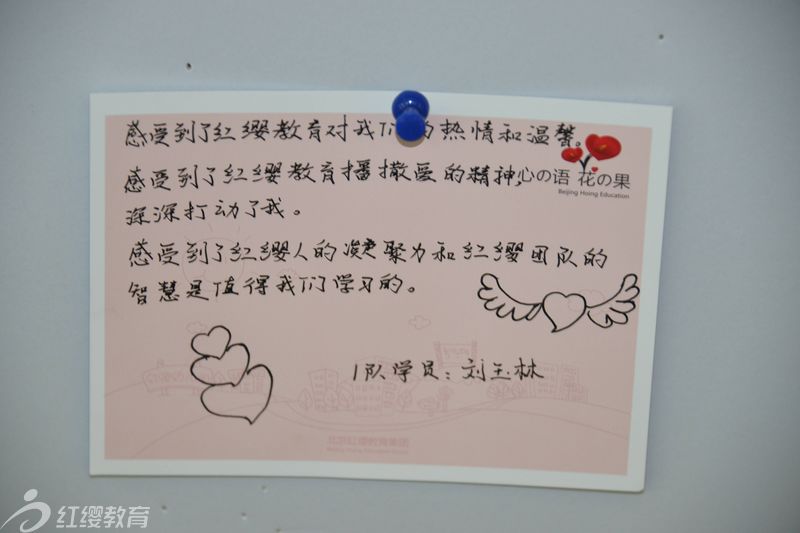 感受到了红缨教育对我们的热情和温馨。
感受到了红缨教育播撒爱的精神,
心の语 花の果
Beijing Hoing Education
深深打动了我。
感受到了红缨人的凝聚力和红缨团队的
智慧是值得我们学习的。
1队学员：刘玉林
北京红缨教育集团
红缨教育